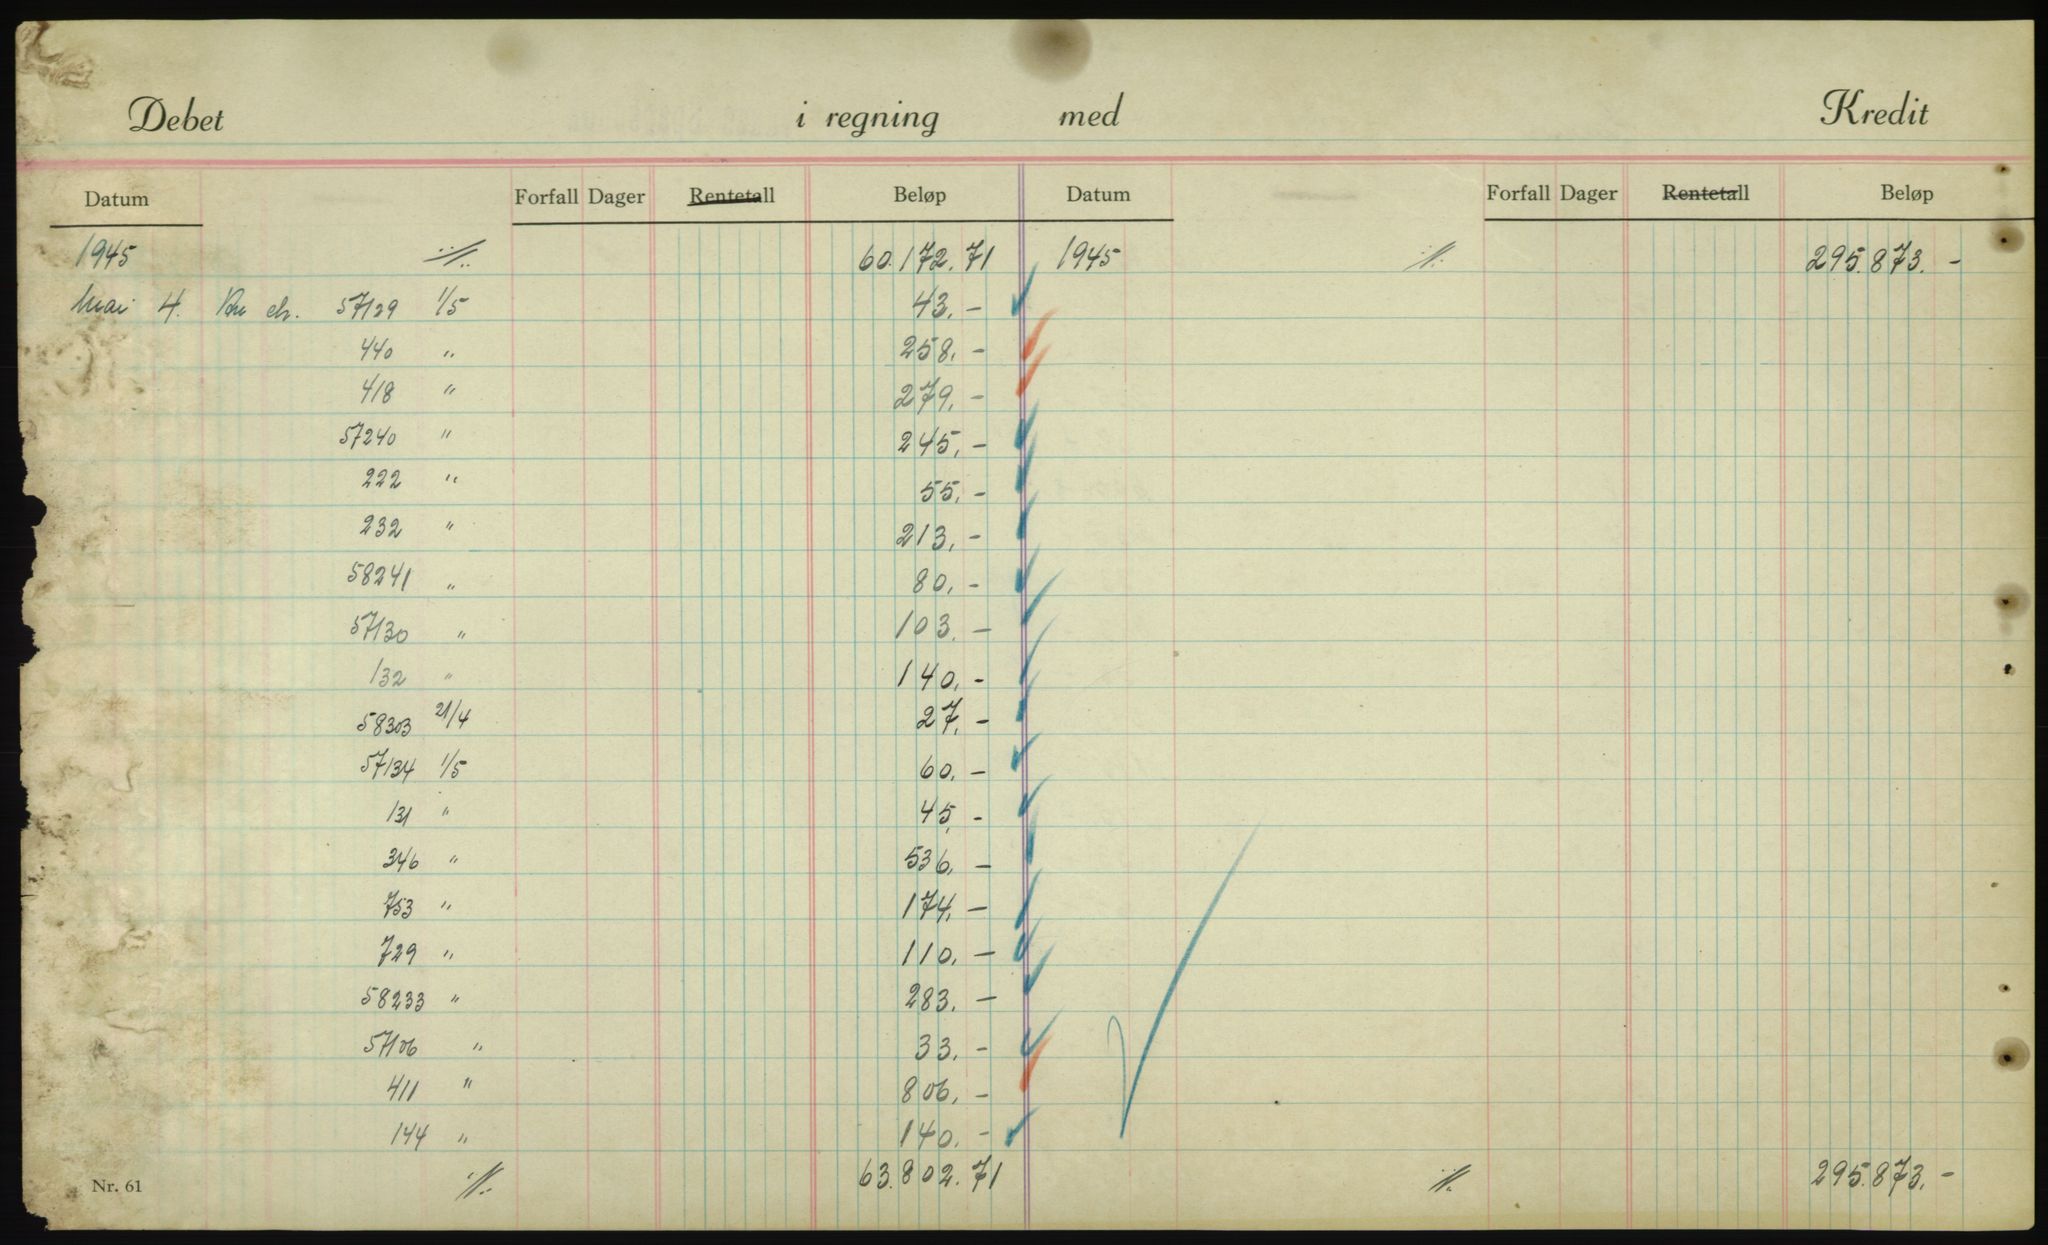 Debet i regning med Kredit
Datum Forfall Dager Rentetall Beløp Datum Forfall Dager Rentetall Beløp
1945 ·/. 60.172.71 1945 ·/. 295.873.-
Mai 4. ch. 57129 1/5 43.-
440 " 258.-
418 " 279.-
57240 " 245.-
222 " 55.-
232 " 213.-
58241 " 80.-
57130 " 103.-
132 " 140.-
58303 21/4 27.-
57134 1/5 60.-
131 " 45.-
346 " 536.-
753 " 174.-
729 " 110.-
58233 " 283.-
57106 " 33.-
411 " 806.-
144 " 140.-
Nr. 61 ·/. 63.802.71 ·/. 295.873.-